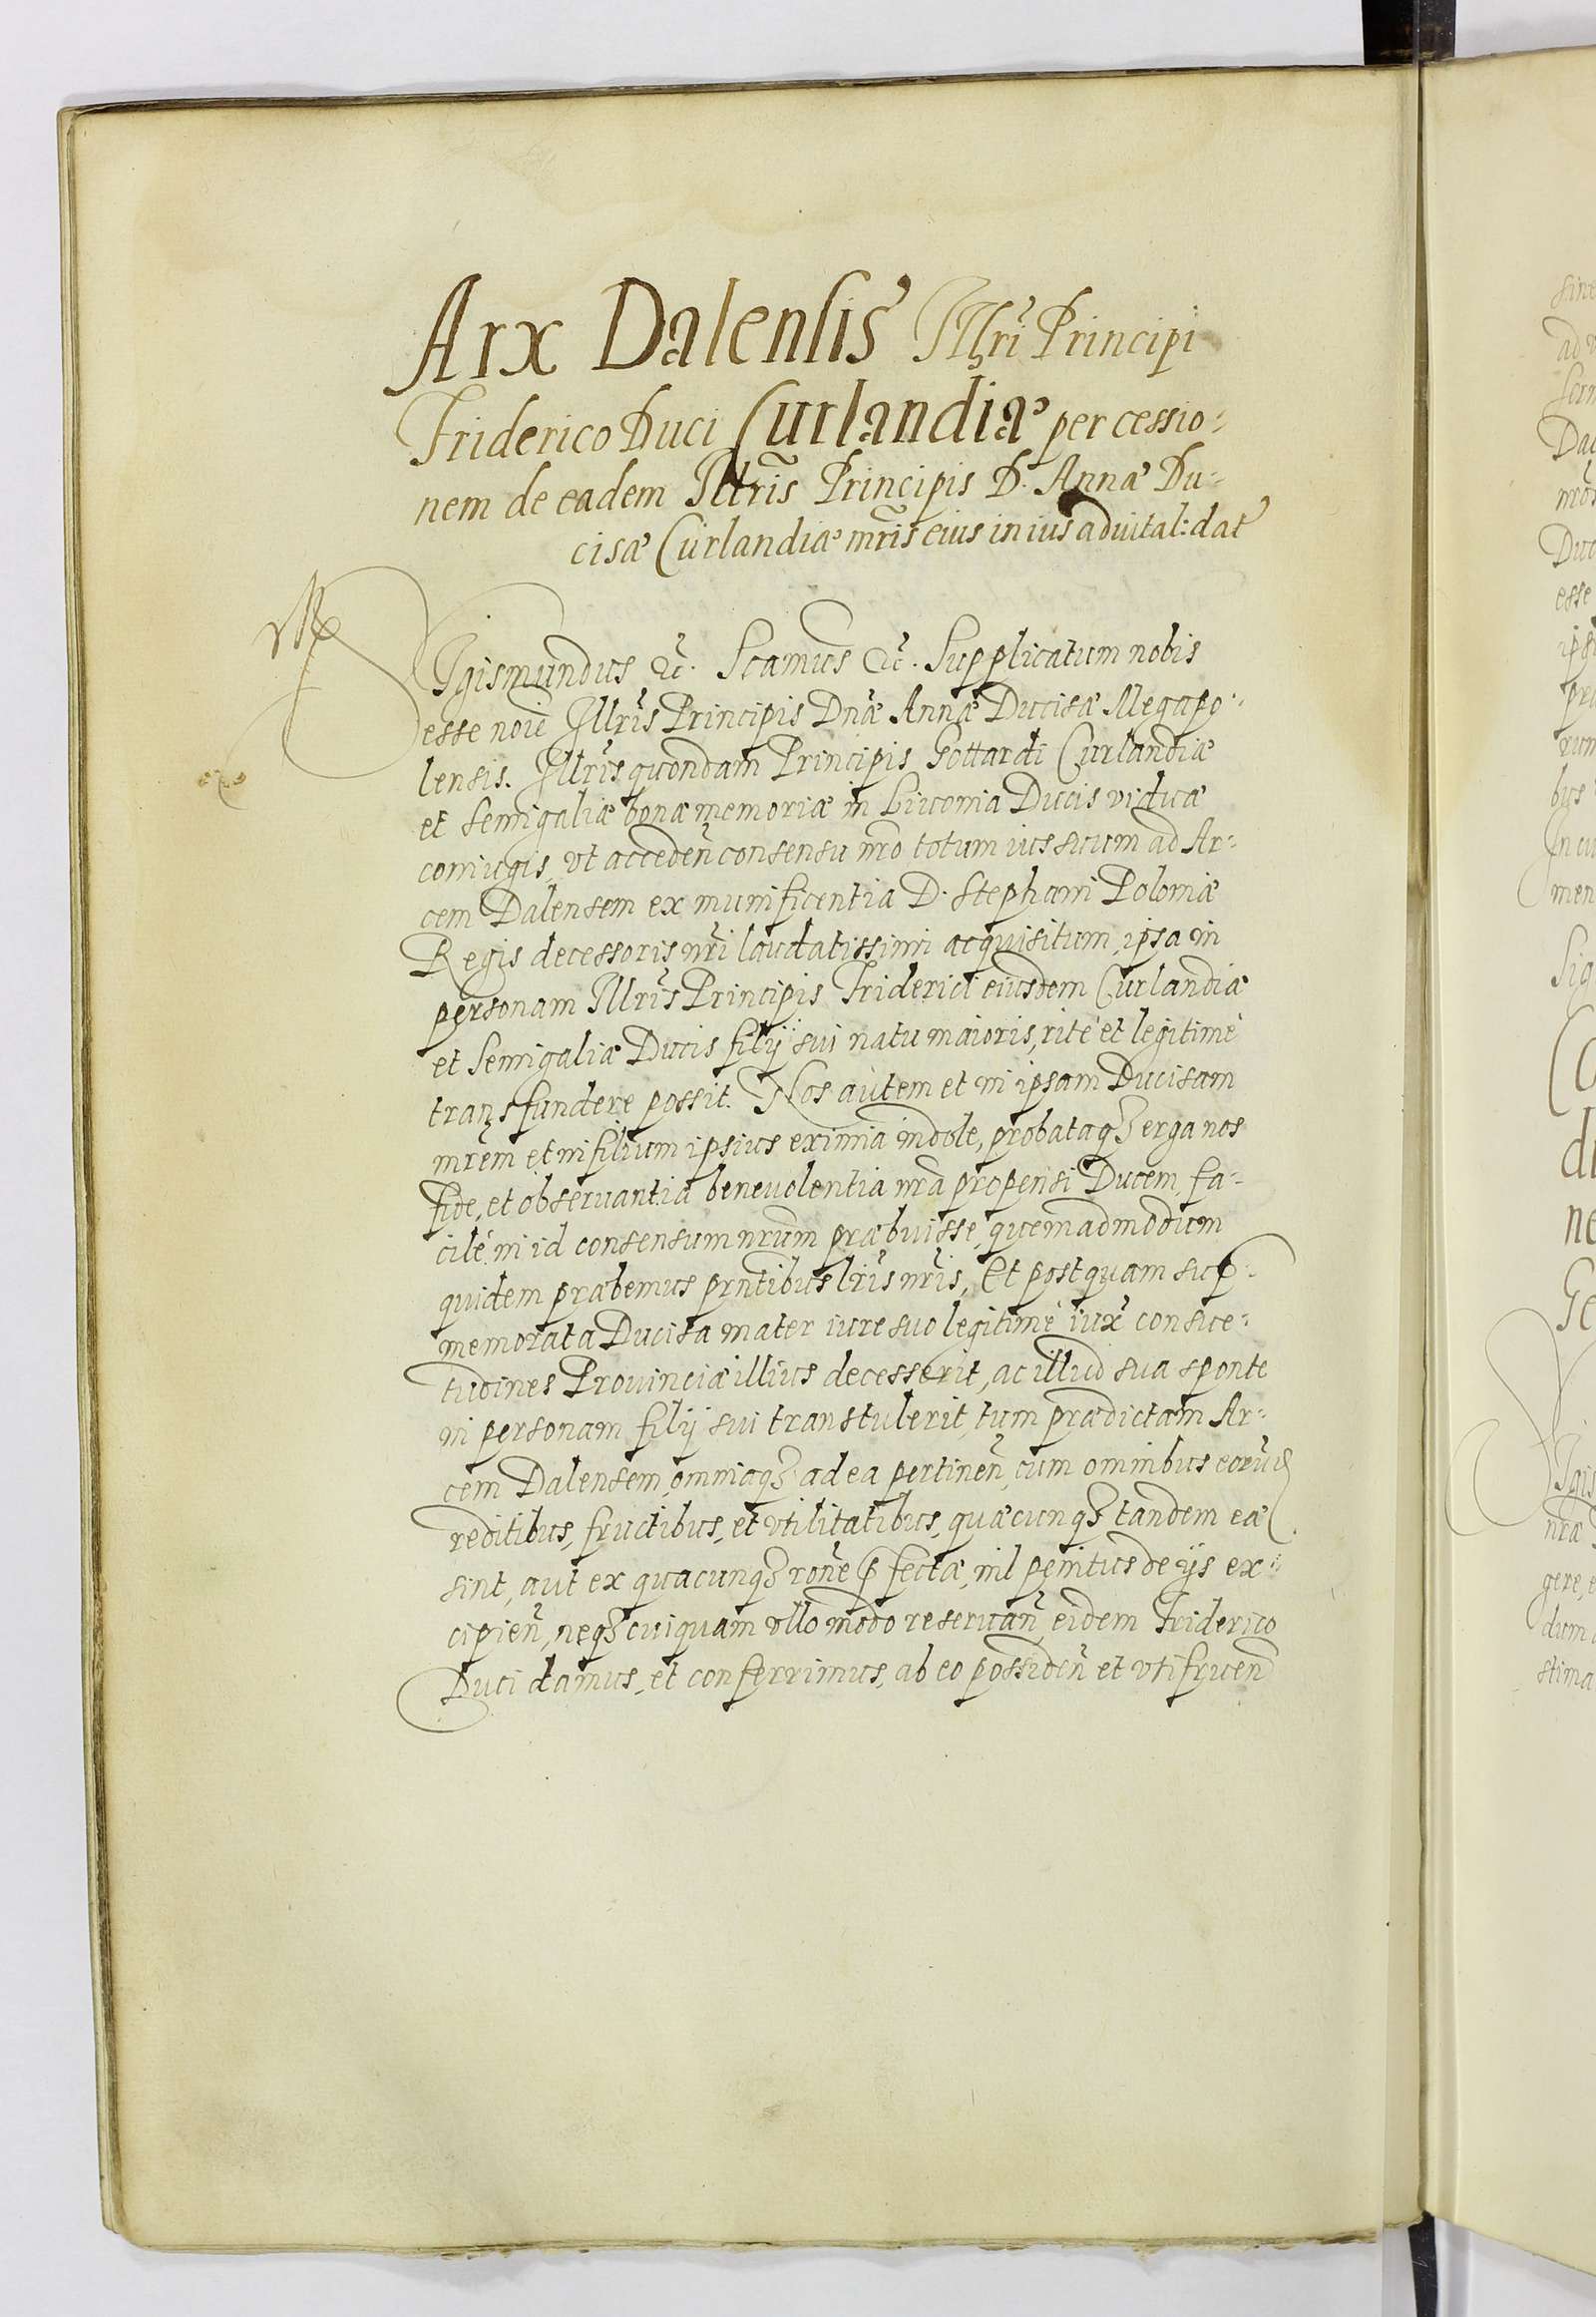 Arx Dalensis Illri Principi
Friderico Duci Curlandiæ per cessio-
nem de eadem Illris Principis D. Annæ Du-
cisæ Curlandiæ mris eius in ius aduital: dat
Sigismundus &c. Scamus &c. Supplicatum nobis
esse noie Illris Principis Dnæ Annæ Ducisæ Megapo-
lensis. Illris quondam Principis Gottardi Curlandiæ
et Semigaliæ bonæ memoriæ in Liuonia Ducis viduæ
coniugis, vt acceden consensu nro totum ius suum ad Ar-
cem Dalensem ex munificentia D. Stephani Poloniæ
Regis decessoris nri laudatissimi acquisitum, ipsa in
personam Illris Principis Friderici eiusdem Curlandiæ
et Semigaliæ Ducis filij sui natu maioris, rité et legitimè
transfundere possit. Nos autem et in ipsam Ducisam
mrem et in filium ipsius eximia indole, probataq3 erga nos
fide, et obseruantia beneuolentia nra propensi Ducem fa-
cilé in id consensum nrum præbuisse, quemadmodum
quidem præbemus prntibus lris nris, Et postquam sup-
memorata Ducisa mater iure suo legitimè iux consue-
tudines Prouinciæ illius decesserit, ac illud sua sponte
in personam filij sui transtulerit, tum prædictam Ar-
cem Dalensem, omniaq3 ad ea pertinen, cum omnibus eorum
reditibus, fructibus, et vtilitatibus, quæcunq3 tandem eæ
sint, aut ex quacunq3 rone pfectæ, nil penitus de ijs ex-
cipien, neq3 cuiquam vllo modo reseruan, eidem Friderico
Duci damus, et conferrimus, ab eo possiden et vtifruen